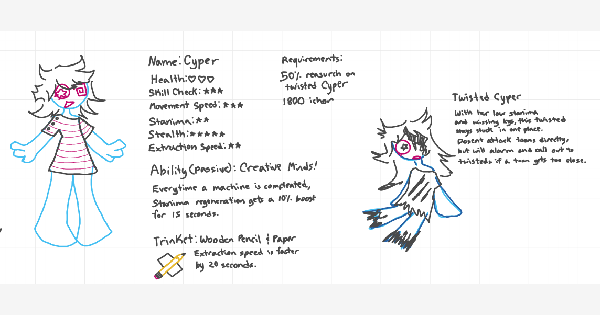 Name: Cyper
Health: ♡♡♡
Skill Check: ★★★
Movement Speed: ★★★
Stamina: ★★
Stealth: ★★★★★
Extraction Speed: ★★
Ability (Passive): Creative Minds!
Everytime a machine is completed,
Stamina regeneration gets a 10% boost
for 15 seconds.
Trinket: Wooden Pencil & Paper
Extraction speed is faster
by 20 seconds.
Requirements:
50% research on
twisted Cyper
1800 ichor
Twisted Cyper
With her low stamina
and missing legs, this twisted
stays stuck in one place.
Doesnt attack toons directly,
but will alarm and call out to
twisteds if a toon gets too close.